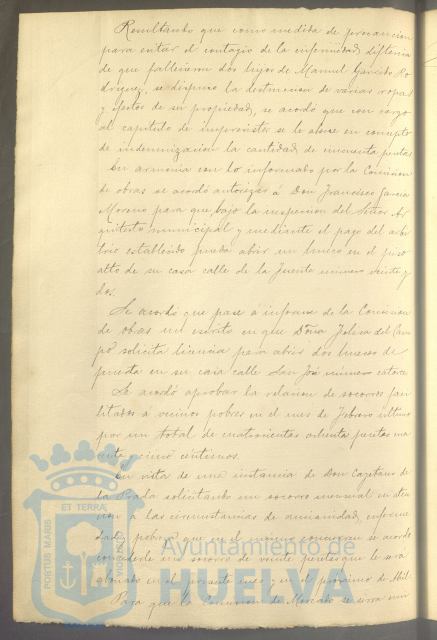 Resultando que como medida de precaucion
para evitar el contagio de la enfermedad difteria
de que fallecieron dos hijos de Manuel Garrido Ro
driguez, se dispuso la destruccion de varias ropas
y efectos de su propiedad, se acordó que con cargo
al capitulo de imprevistos se le abone en concepto
de indemnizacion la cantidad de cincuenta pesetas
En armonia con lo informado por la Comision
de obras se acordó autorizar á Don Francisco Garcia
Moreno para que bajo la inspeccion del Señor Ar
quitecto municipal y mediante el pago del arbi
trio establecido pueda abrir un hueco en el piso
alto de su casa calle de la Fuente número veinte y
dos.
Se acordó que pase á informe de la Comision
de obras un escrito en que Doña Josefa del Cam
po solicita licencia para abrir dos huecos de
puerta en su casa calle San José número catorce
Se acordó aprobar la relacion de socorros faci
litados á vecinos pobres en el mes de Febrero último
por un total de cuatrocientas ochenta pesetas
cinco centimos.
En vista de una instancia de Don Cayetano de
la Prada solicitando un socorro mensual en aten
cion á las circunstancias de ancianidad, enferme
dad y pobreza que en el mismo concurren se acordó
concederle un socorro de veinte pesetas que le será
abonado en el presente mes y en el próximo de Abril.
Para que la Comision de Mercado se sirva
PORTUS MARIS
ET TERRÆ
Ayuntamiento de
HUELVA